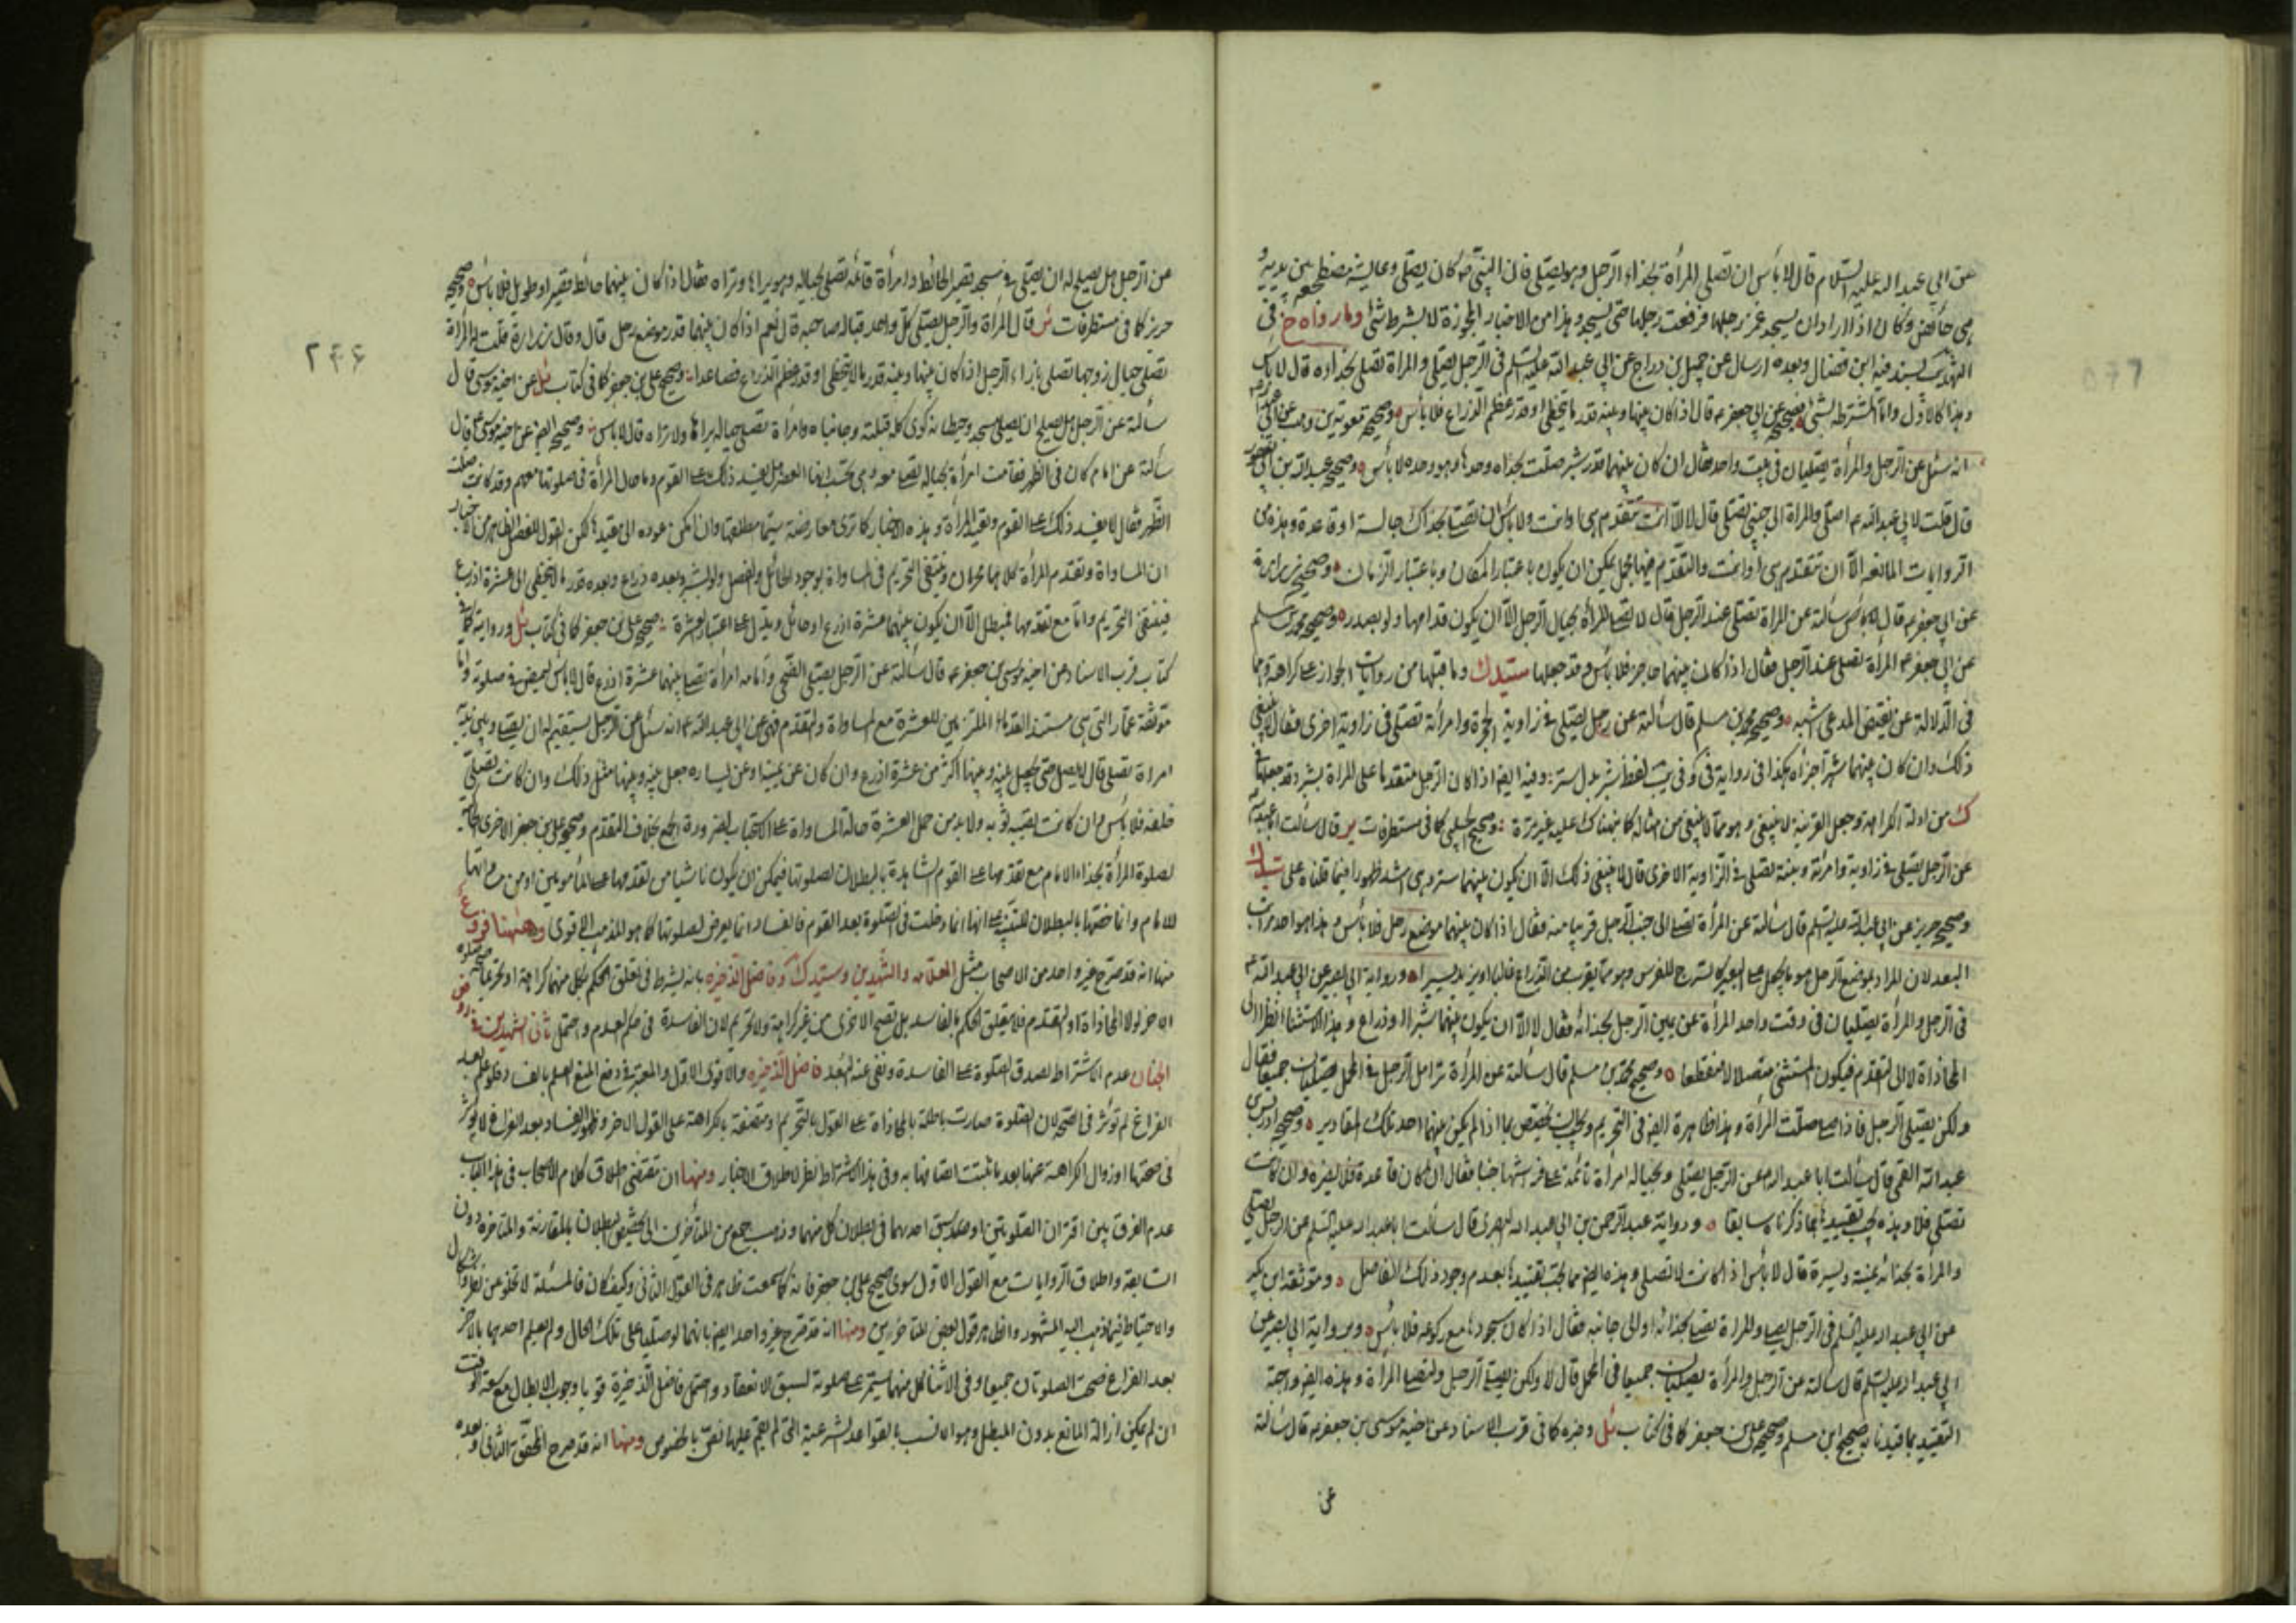 عن ابي عبد الله عليه السلام قال لا بأس ان تصلي المرأة بحذاء الرجل وهو يصلي فان النبي ص كان يصلي وعايشة مضطجعة بين يديه و
هي حائض وكان اذا اراد ان يسجد غمز رجلها فرفعت رجلها حتى يسجد وهذا من الاخبار المجوزة لا بشرط شئ وما رواه خ في
التهذيب بسند فيه ابن فضال وبعده ارسال عن جميل بن دراج عن ابي عبد الله عليه السلم في الرجل يصلي والمراة تصلي بحذاه قال لا بأس
وهذا كالاول واما المشترطة بشئ فصحيحه عن ابي جعفر ع قال اذا كان بينها وبينه قدر ما يتخطى او قدر عظم الذراع فلا بأس وصحيح معوية بن وهب عن ابي عبد الله ع
انه سئل عن الرجل والمرأة يصليان في بيت واحد فقال ان كان بينهما قدر شبر صلت بحذاه وحدها وهو وحده لا بأس وصحيح عبد الله بن ابي يعفور
قال قلت لابي عبد الله ع اصلي والمراة الى جنبي تصلي قال لا الا ان تتقدم هي او انت ولا بأس ان تصلي بحذاك جالسة او قاعدة وهذه من
الروايات المانعة الا ان تتقدم هي او انت والتقدم فيها مجمل يمكن ان يكون باعتبار المكان وباعتبار الزمان وصحيح زرارة
عن ابي جعفر ع قال سألته عن المراة تصلي عند الرجل قال لا تصلي المرأة بحيال الرجل الا ان يكون قدامها ولو بصدره وصحيح محمد بن مسلم
عن ابي جعفر ع المرأة تصلي عند الرجل فقال اذا كان بينهما حاجز فلا بأس وقد جعلها سيد ك وما قبلها من روايات الجواز على كراهة وهما
في الدلالة عن نقيض المدعى اشبه وصحيح محمد بن مسلم قال سألته عن رجل يصلي في زاوية الحجرة وامرأته تصلي في زاوية اخرى فقال لا ينبغي
ذلك وان كان بينهما شبر اجزأه هكذا في رواية في كو في يب لفظ شبر بدل ستر وفيه ايضا اذا كان الرجل متقدما على المراة بشبر وقد جعلها في
ك من ادلة الكراهة وجعل القرينة لا ينبغي وهو مما لا ينبغي من امثاله كما نبهناك عليه غير مرة وصحيح الحلبي كما في مستطرفات ير قال سألت ابا عبد الله ع
عن الرجل يصلي في زاوية وامرأته وبنته تصلي في الزاوية الاخرى قال لا ينبغي ذلك الا ان يكون بينهما ستر وهي اشد ظهورا فيما قلناه على سيد ك
وصحيح حريز عن ابي عبد الله عليه السلم قال سألته عن المرأة تصلي الى جنب الرجل قريبا منه فقال اذا كان بينهما موضع رحل فلا بأس وهذا هو احد مراتب
البعد لان المراد بموضع الرحل هو ما يجعل على البعير كالسرج للفرس وهو مما يقرب من الذراع غالبا او يزيد يسيرا ورواية ابي بصير عن ابي عبد الله ع
في الرجل والمرأة يصليان في وقت واحد المرأة عن يمين الرجل بحذائه فقال لا الا ان يكون بينهما شبر او ذراع وهذا الاستثناء نظرا الى
المحاذاة لا الى التقدم فيكون المستثنى متصلا لا منقطعا وصحيح محمد بن مسلم قال سألته عن المرأة تزامل الرجل في المحمل يصليان جميعا فقال لا
ولكن يصلي الرجل فاذا صلى صلت المرأة وهذا ظاهرة ايضا في التحريم ويجب ان يخصص بما اذا لم يكن بينهما احد تلك المقادير وصحيح ادريس بن
عبد الله القمي قال سألت ابا عبد الله ع عن الرجل يصلي وبحياله امرأة نائمة على فراشها جنبا فقال ان كان قاعدة فلا يضره وان كانت
تصلي فلا وهذه يجب تقييدها بما ذكرناه سابقا ورواية عبد الرحمن بن ابي عبد الله البصري قال سألت ابا عبد الله عليه السلم عن الرجل يصلي
والمرأة بحذائه يمنة ويسرة قال لا بأس اذا كانت لا تصلي وهذه ايضا مما يجب تقييدها بعدم وجود ذلك الفاصل وموثقة ابن بكير
عن ابي عبد الله عليه السلم في الرجل يصلي والمراة تصلي بحذائه او الى جانبه فقال اذا كان سجودها مع ركوعه فلا بأس ورواية ابي بصير عن
ابي عبد الله عليه السلم قال سألته عن الرجل والمرأة يصليان جميعا في المحمل قال لا ولكن يصلي الرجل وتصلي المرأة وهذه ايضا واجبة
التقييد بما قيدنا به صحيح ابن مسلم وصحيح علي بن جعفر كما في كتاب ئل وغيره كما في قرب الاسناد عن اخيه موسى بن جعفر ع قال سألته
عن
٢٤۶
عن الرجل هل يصلح له ان يصلي في مسجد قصير الحائط وامرأة قائمة تصلي بحياله وهو يراها وتراه فقال اذا كان بينهما حائط قصير او طويل فلا بأس وصحيح
حريز كما في مستطرفات ئر قال المرأة والرجل يصلي كل واحد قبالة صاحبه قال نعم اذا كان بينهما قدر موضع رحل قال وقال زرارة قلت له المرأة
تصلي حيال زوجها تصلي بازاء الرجل اذا كان بينها وبينه قدر ما لا يتخطى او قدر عظم الذراع فصاعدا وصحيح علي بن جعفر كما في كتاب ئل عن اخيه موسى قال
سألته عن الرجل هل يصلح ان يصلي في مسجد وحيطانه كوى كله قبلته وجانباه وامرأة تصلي حياله يراها ولا تراه قال لا بأس وصحيحه ايضا عن اخيه موسى ع قال
سألته عن امام كان في الظهر فقامت امرأة بحياله تصلي معه وهي تحسب انها العصر هل يفسد ذلك على القوم وما حال المرأة في صلوتها معهم وقد كانت صلت
الظهر فقال لا يفسد ذلك على القوم وتعيد المرأة وهذه الاخبار كما ترى متعارضة سيما مطلقها وان امكن عوده الى مقيدها لكن القول المفصل الظاهر من الاخبار
ان المساواة وتقدم المرأة كلاهما محرمان وينتفي التحريم في المساواة بوجود الحائل والفصل ولو بشبر وبعده ذراع وبعده قدر ما لا يتخطى الى عشرة اذرع
فينتفي التحريم واما مع تقدمها فمبطل الا ان يكون بينهما عشرة اذرع او حائل ويدل على اعتبار العشرة صحيح علي بن جعفر كما في كتاب ئل ورواية كما في
كتاب قرب الاسناد عن اخيه موسى بن جعفر ع قال سألته عن الرجل يصلي الضحى وامامه امرأة تصلي بينهما عشرة اذرع قال لا بأس ليمض في صلوته واما
موثقة عمار التي هي مستند القدماء الملتزمين للعشرة مع المساواة والتقدم فهي عن ابي عبد الله ع انه سئل عن الرجل يستقيم له ان يصلي وبين يديه
امراة تصلي قال لا يصلي حتى يجعل بينه وبينها اكثر من عشرة اذرع وان كان عن يمينها وعن يساره جعل بينه وبينها مثل ذلك وان كانت تصلي
خلفه فلا بأس وان كانت تصيب ثوبه ولا بد من حمل العشرة حالة المساواة على الاستحباب لضرورة الجمع بخلاف المتقدم وصحيح علي بن جعفر الاخرى
لصلوة المرأة بحذاء الامام مع تقدمها على القوم الشاهدة بالبطلان لصلوتها فيمكن ان يكون ناشيا من تقدمها على المأمومين او من مساواتها
للامام وانما خصها بالبطلان للتنبيه على انها انما دخلت في الصلوة بعد القوم فالفساد انما يعرض لصلوتها كما هو المذهب الاقوى وههنا فروع
منها انه قد صرح غير واحد من الاصحاب مثل العلامه والشهيدين وسيد ك وفاضل الذخيره بانه يشترط في تعلق الحكم بكل منهما كراهة او تحريما صحة صلوة
الاخر لولا المحاذاة او التقدم فلا يتعلق الحكم بالفاسد بل تصح الاخرى من غير كراهة ولا تحريم لان الفاسدة في حكم العدم واحتمل ثاني الشهيدين في روض
الجنان عدم الاشتراط لصدق الصلوة على الفاسدة ونفى عنه البعد فاضل الذخيره والاقوى الاول والمعتبر في دفع المنع العلم بالفساد فلو علم بعد
الفراغ لم تؤثر في الصحة لان الصلوة صارت باطلة بالمحاذاة على القول بالتحريم او متصفة بالكراهة على القول الاخر وظهور الفساد بعد الفراغ لا يؤثر
في صحتها او زوال الكراهة عنها بعد ما ثبتت اتصافها به وفي هذا الاشتراط نظر لاطلاق الاخبار ومنها ان مقتضى اطلاق كلام الاصحاب في هذا الباب
عدم الفرق بين اقتران الصلوتين او سبق احدهما في بطلان كل منهما وذهب جمع من المتأخرين الى تخصيص البطلان بالمقارنة والمتاخرة دون
السابقة واطلاق الروايات مع القول الاول سوى صحيح علي بن جعفر فانه كما سمعت ظاهر في القول الثاني وكيف كان فالمسئلة لا تخلو عن اشكال
والاحتياط فيما ذهب اليه المشهور والظاهر قول بعض المتاخرين ومنها انه قد صرح غير واحد ايضا بانهما لو صليا على تلك الحال ولم يعلم احدهما بالاخر الا
بعد الفراغ صحت الصلوتان جميعا وفي الاثنا كل منهما يستمر على صلوته لسبق الانعقاد واحتمل فاضل الذخيرة قويا وجوب الابطال مع سعة الوقت
ان لم يمكن ازالة المانع بدون المبطل وهو الانسب بالقواعد الشرعية التي لم يقم عليها نص بالخصوص ومنها انه قد صرح المحقق الثاني وبعده